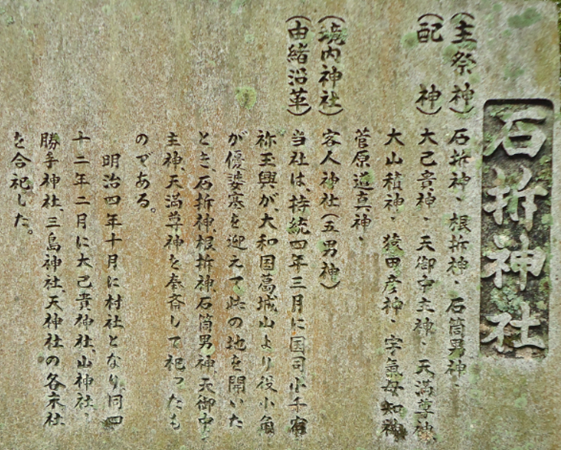 石折神社
(主祭神)石折神、根折神、石筒男神、
(配 神)大己貴神、天御中主神、天満尊神、
大山積神、猿田彦神、宇気母知神
菅原道真神、
(境内神社)客人神社(五男神)
(由緒沿革)当社は、持統四年三月に国司小千宿
祢玉興が大和国葛城山より役小角
が優婆塞を迎えて此の地を開いた
とき、石折神、根折神石筒男神天御中
主神、天満尊神を奉斎して祀ったも
のである。
明治四年十月に村社となり、同四
十二年二月に大己貴神社、山神社、
勝手神社、三島神社、天神社の各末社
を合祀した。